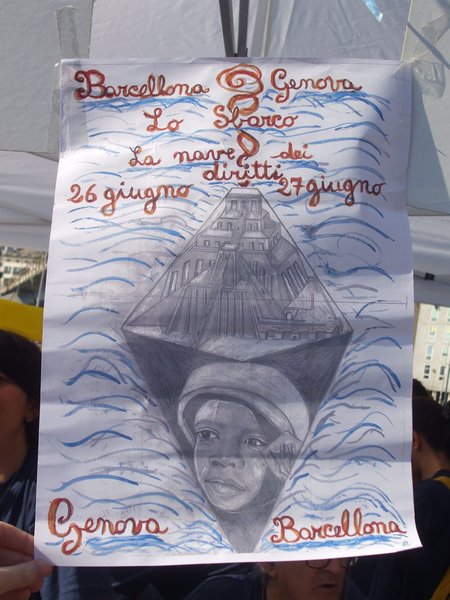 Barcellona Genova
Lo Sbarco
La nave dei
diritti
26 giugno 27 giugno
Genova Barcellona